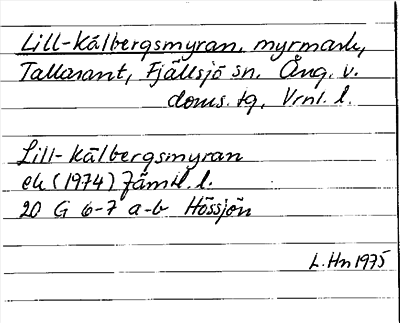 Lill-Kälbergsmyran, myrmark,
Tallåsant, Fjällsjö sn. Ång. v.
doms. tg, Vrnl. l.
Lill-Kälbergsmyran
ek (1974) Jämtl. l.
20 G 6-7 a-b Hössjön
L. Hn 1975